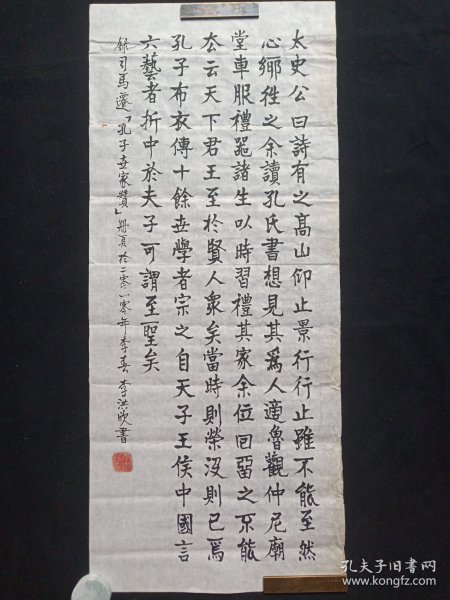 太史公曰詩有之高山仰止景行行止雖不能至然
心鄉往之余讀孔氏書想見其爲人適魯觀仲尼廟
堂車服禮器諸生以時習禮其家余低回留之不能
去云天下君王至於賢人衆矣當時則榮沒則已焉
孔子布衣傳十餘世學者宗之自天子王侯中國言
六藝者折中於夫子可謂至聖矣
錄司馬遷「孔子世家贊」
二零一零年季春李洪 書
孔夫子旧书网
www.kongfz.com